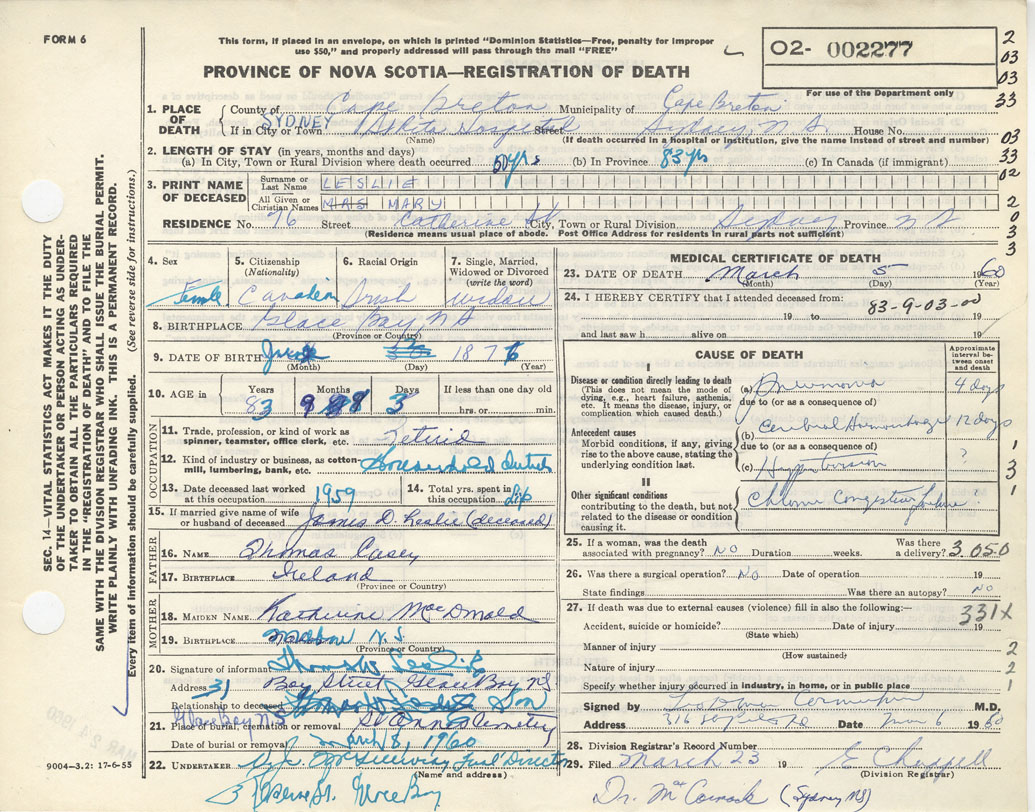 FORM 6
This form, if placed in an envelope, on which is printed "Dominion Statistics—Free, penalty for improper
use $50," and properly addressed will pass through the mail "FREE"
02- 002277
For use of the Department only
PROVINCE OF NOVA SCOTIA—REGISTRATION OF DEATH
2
03
03
33
03
33
02
2
0
3
3
SEC. 14—VITAL STATISTICS ACT MAKES IT THE DUTY
OF THE UNDERTAKER OR PERSON ACTING AS UNDER-
TAKER TO OBTAIN ALL THE PARTICULARS REQUIRED
IN THE "REGISTRATION OF DEATH" AND TO FILE THE
SAME WITH THE DIVISION REGISTRAR WHO SHALL ISSUE THE BURIAL PERMIT.
WRITE PLAINLY WITH UNFADING INK. THIS IS A PERMANENT RECORD.
Every item of Information should be carefully supplied. (See reverse side for instructions.)
1. PLACE OF DEATH County of Cape Breton Municipality of Cape Breton
If in City or Town SYDNEY St Rita Hospital Street Sydney, N.S. House No.
(Name) (If death occurred in a hospital or institution, give the name instead of street and number)
2. LENGTH OF STAY (in years, months and days)
(a) In City, Town or Rural Division where death occurred 50 yrs (b) In Province 83 yrs (c) In Canada (if immigrant)
3. PRINT NAME OF DECEASED Surname or Last Name LESLIE
All Given or Christian Names MRS MARY
RESIDENCE No. 76 Street Catherine St City, Town or Rural Division Sydney Province N S
(Residence means usual place of abode. Post Office Address for residents in rural parts not sufficient)
4. Sex Female
5. Citizenship (Nationality) Canadian
6. Racial Origin Irish
7. Single, Married, Widowed or Divorced (write the word) widow
8. BIRTHPLACE Glace Bay, N S
(Province or Country)
9. DATE OF BIRTH 1876
(Month) (Day) (Year)
10. AGE in Years 83 Months 9 Days 3 If less than one day old
hrs. or min.
OCCUPATION
11. Trade, profession, or kind of work as
spinner, teamster, office clerk, etc. Retired
12. Kind of industry or business, as cotton-
mill, lumbering, bank, etc. Household Duties
13. Date deceased last worked at this occupation 1959
14. Total yrs. spent in this occupation life
15. If married give name of wife
or husband of deceased James D. Leslie (deceased)
FATHER
16. NAME Thomas Casey
17. BIRTHPLACE Ireland
(Province or Country)
MOTHER
18. MAIDEN NAME Katherine MacDonald
19. BIRTHPLACE N.S.
(Province or Country)
20. Signature of informant Thomas Leslie
Address 31 Bay Street Glace Bay NS
Relationship to deceased Son
Glace Bay N S
21. Place of burial, cremation or removal St Anns Cemetery
Date of burial or removal March 8, 1960
22. UNDERTAKER
(Name and address)
MEDICAL CERTIFICATE OF DEATH
23. DATE OF DEATH March 5 1960
(Month) (Day) (Year)
24. I HEREBY CERTIFY that I attended deceased from:
83-9-03-00
19 to 19
and last saw h alive on 19
CAUSE OF DEATH
Approximate interval between onset and death
I
Disease or condition directly leading to death
(This does not mean the mode of
dying, e.g., heart failure, asthenia,
etc. It means the disease, injury, or
complication which caused death.)
(a) Pneumonia 4 days
due to (or as a consequence of)
Antecedent causes
Morbid conditions, if any, giving
rise to the above cause, stating the
underlying condition last.
(b) Cerebral Hemorrhage 12 days
due to (or as a consequence of)
(c) Hypertension ?
II
Other significant conditions
contributing to the death, but not
related to the disease or condition
causing it.
Chronic Congestive Failure
1
3
1
25. If a woman, was the death
associated with pregnancy? NO Duration weeks. Was there a delivery? 3.050
26. Was there a surgical operation? No Date of operation 19
State findings Was there an autopsy? NO
27. If death was due to external causes (violence) fill in also the following:— 331X
Accident, suicide or homicide? Date of injury 19
(State which)
Manner of injury 2
(How sustained)
Nature of injury 2
Specify whether injury occurred in industry, in home, or in public place 1
Signed by M.D.
Address Date 6 1960
28. Division Registrar's Record Number
29. Filed March 23 19 E Chappell
(Division Registrar)
Dr. McCormack (Sydney NS)
MAR 24 1960
9004-3.2: 17-6-55